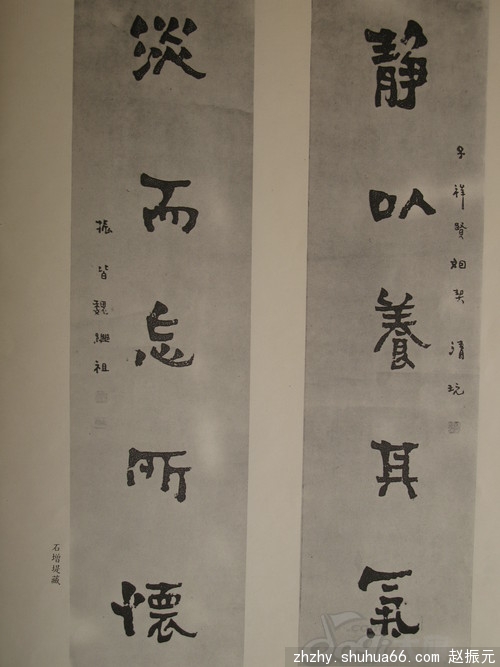 静以養其氣
子祥賢姻契 清玩
淡而忘所懷
振皆魏繼祖
石增堤藏
zhzhy.shuhua66.com 赵振元